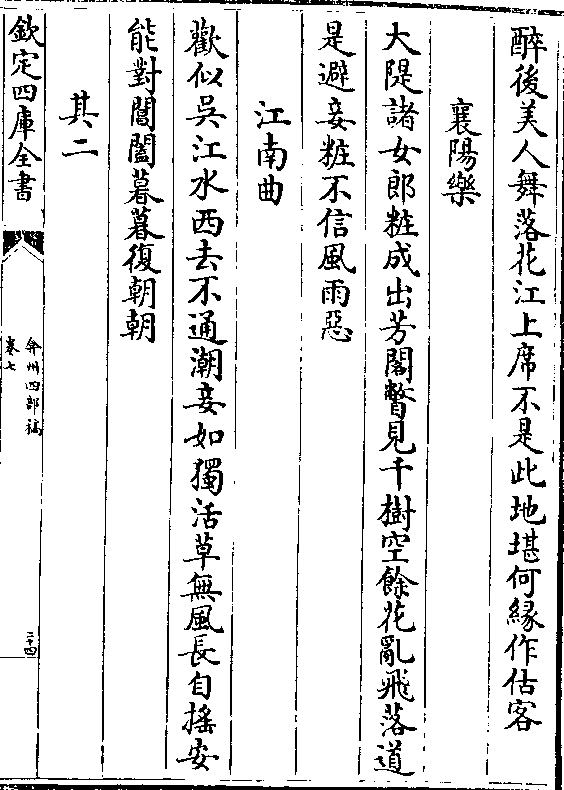 醉後美人舞落花江上席不是此地堪何緣作估客
襄陽樂
大隄諸女郎粧成出芳閣瞥見千樹空餘花亂飛落道
是避妾粧不信風雨惡
江南曲
歡似吳江水西去不通潮妾如獨活草無風長自搖安
能對閶闔暮暮復朝朝
其二
欽定四庫全書
弇州四部稿
卷七
二十四